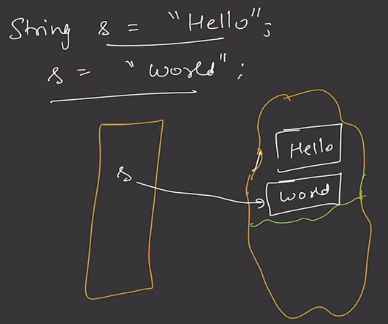 String s = "Hello";
s = "world";
Hello
s
world